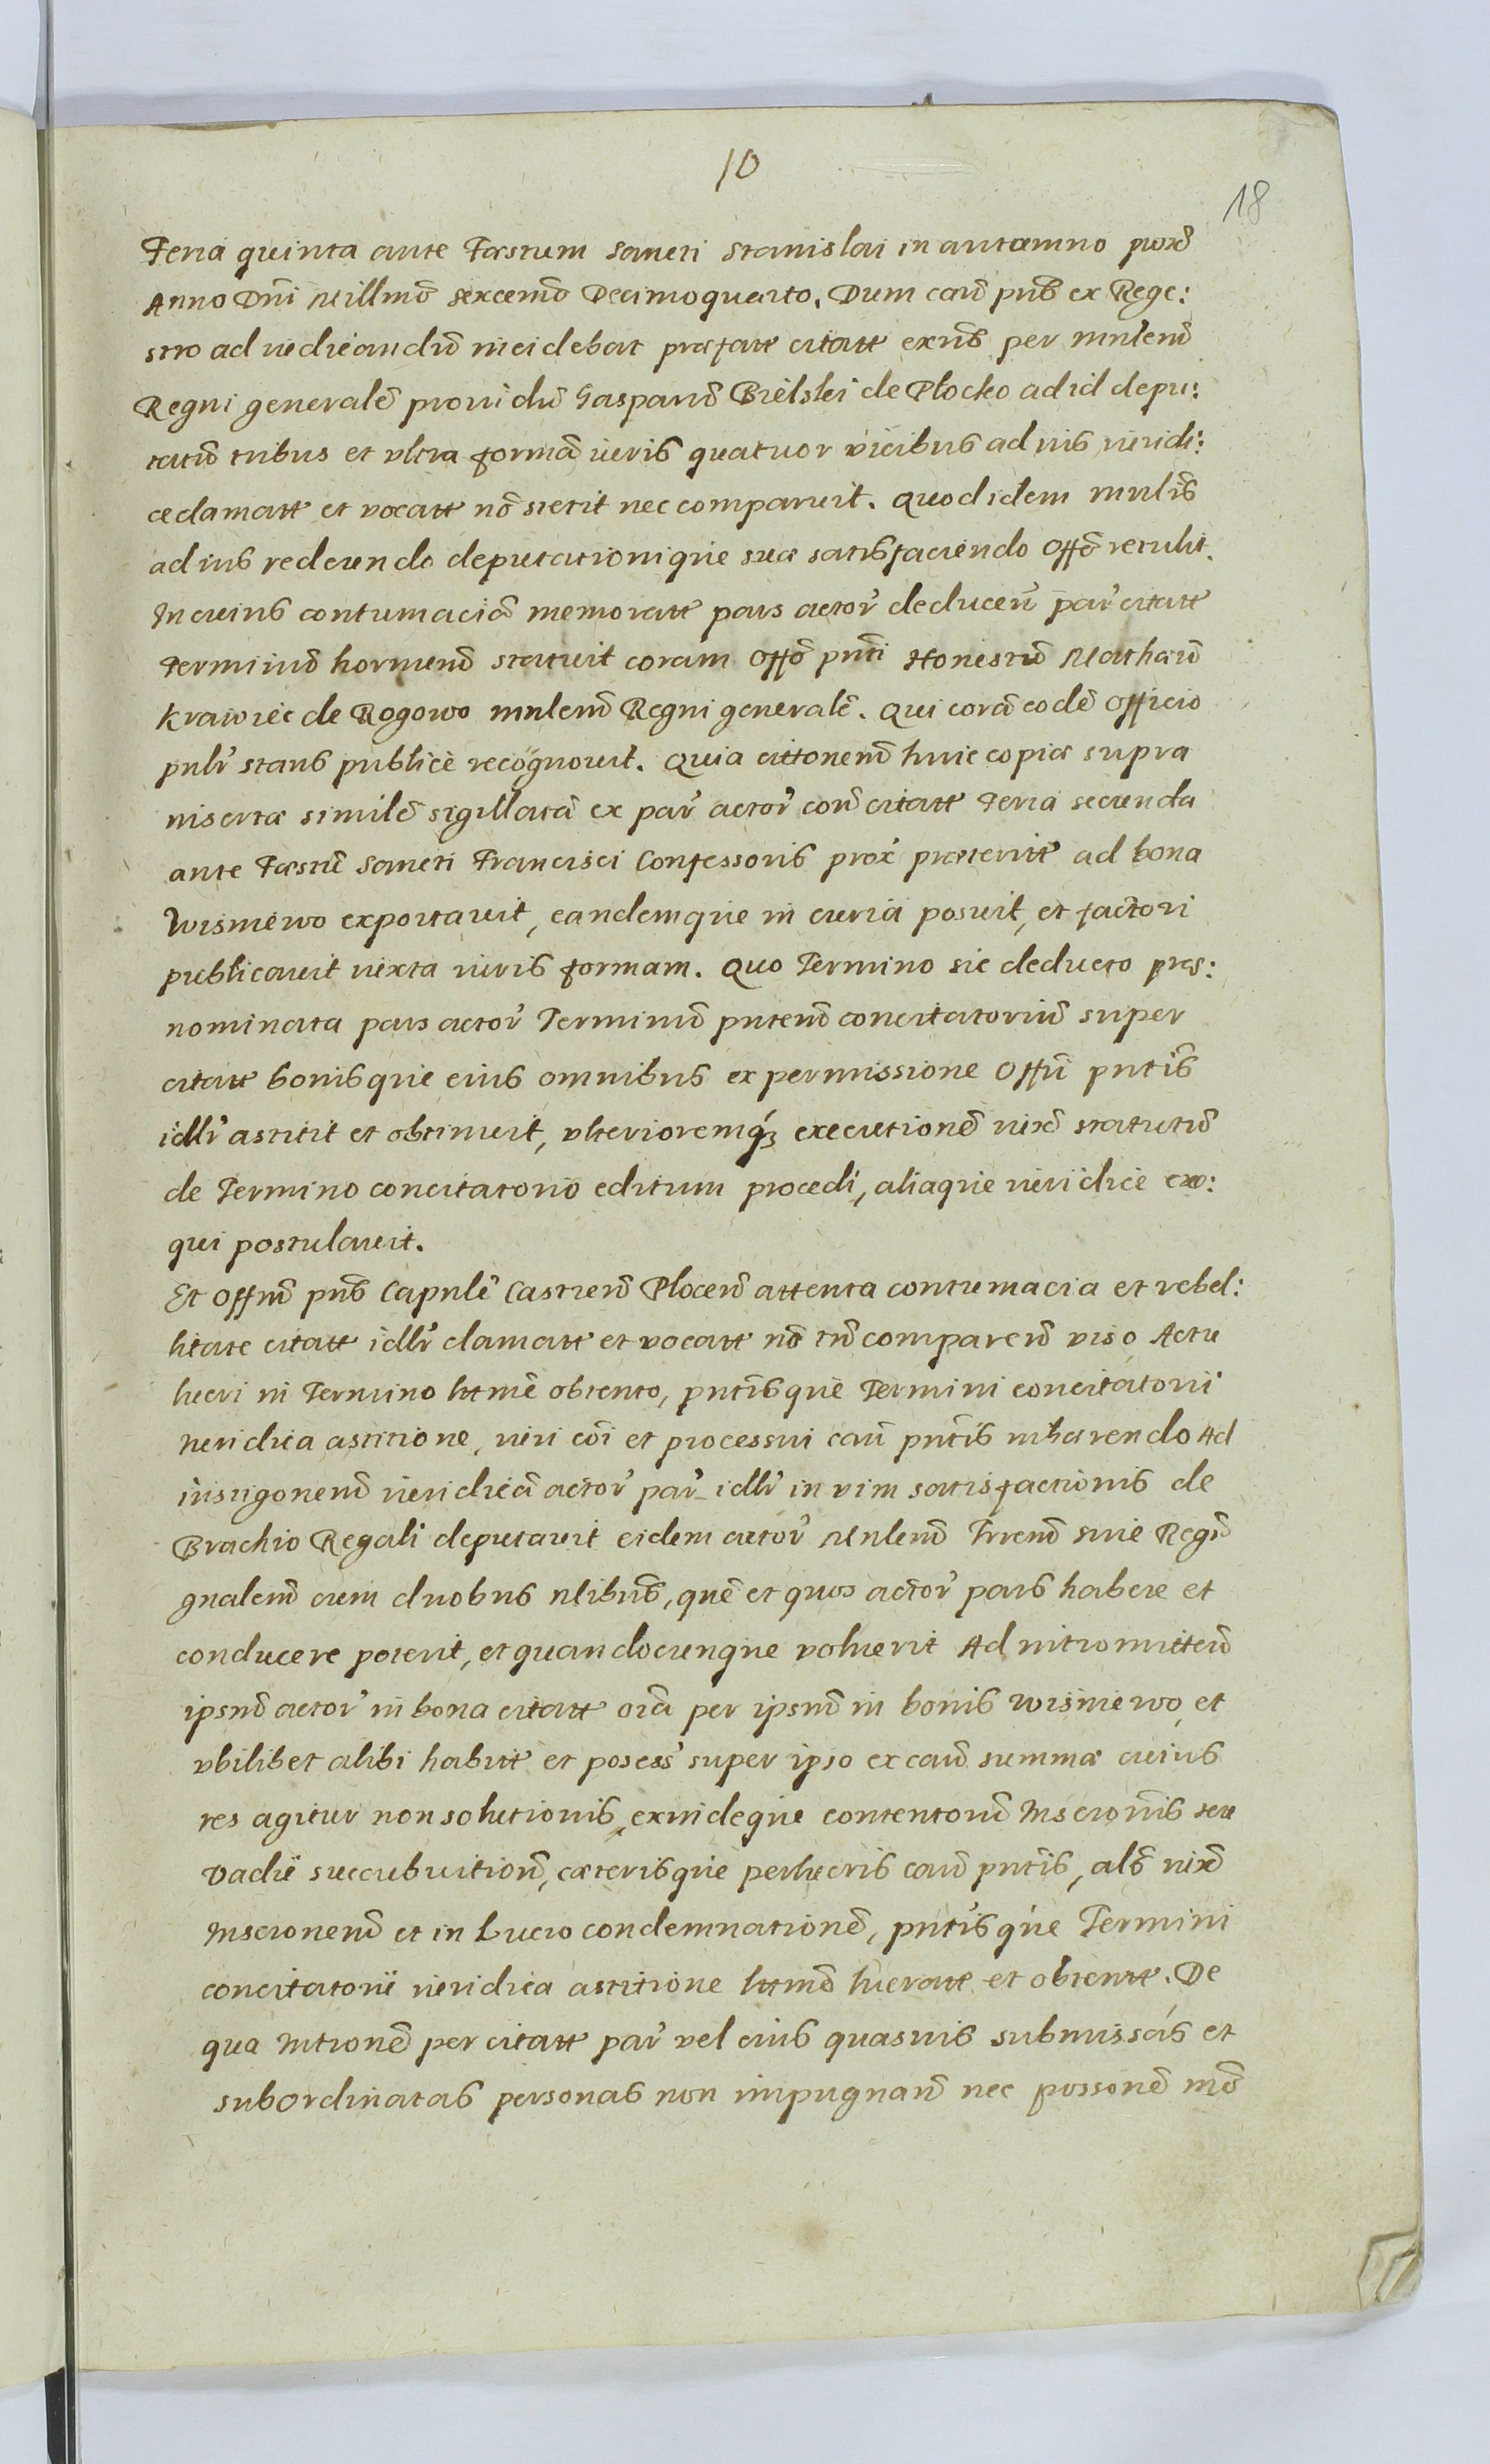 10
18
Feria quinta ante Fæstum Sancti Stanislai in autumno prox̄
Anno Dn̄i Millm̄o sexcenmō Decimoquarto. Dum caū pn̄s ex Rege:
stro ad iudicandū incidebat præfatt citatt exn̄s per mnlem̄
Regni generalē prouidū Gasparū Bielski de Plocko ad id depu:
tatū tribus et vltra formā iuris quatuor vicibus ad ius iuridi:
ce clamatt et vocatt nō stetit nec comparuit. Quod idem mnlis̄
ad ius redeundo deputationique suæ satisfaciendo Offō retulit.
In cuius contumaciā memoratt pars actor̄ deducen̄ par̄ citatt
Terminū hornunū statuit coram Offō pn̄ti Honestū Mathæū
Krawiec de Rogowo mnlem̄ Regni generalē. Qui corā eodē Officio
pnlr̄ stans publicè recognouit. Quia cittonem̄ huic copiæ supra
insertæ similē sigillatā ex par̄ actor̄ con̄ citatt Feria secunda
ante Fæstū Sancti Francisci Confessoris prox̄ præteritt ad bona
Wisniewo exportauit, eandemque in curia posuit, et factori
publicauit iuxta iuris formam. Quo Termino sic deducto præ:
nominata pars actor̄ Terminū pn̄tem̄ concitatoriū super
citatt bonisque eius omnibus ex permissione Offii pn̄tis̄
idlr̄ astitit et obtinuit, vlterioremq́ȝ executionē iux̄ statutū
de Termino concitatorio editum procedi, aliaque iuridicè exe:
qui postulauit.
Et Offm̄ pn̄s Capnlē Castren̄ Plocen̄ attenta contumacia et rebel:
litate citatt idlr̄ clamatt et vocatt nō tn̄ comparen̄ viso Actu
lucri in Termino lttmē obtento, pn̄tisque Termini concitatorii
iuridica astitione, iuri cōi et processui caū pn̄tis inhærendo Ad
instigonem̄ iuridicā actor̄ par̄ idlr̄ in vim satisfactionis de
Brachio Regali deputauit eidem actor̄ Mnlem̄ Trrem̄ siue Regn̄
gnalem̄ cum duobus nlibus̄, quē et quos actor̄ pars habere et
conducere poterit, et quandocunque voluerit Ad intromitten̄
ipsum̄ actor̄ in bona citatt oīa per ipsum̄ in bonis Wisniewo, et
vbilibet alibi habitt et posess̄ super ipso ex caū summæ cuius
res agitur non solutionis, exindeque contentorū Inscronis̄ seu
vadii succubuition̄, cæterisque perlucris caū pn̄tis, als̄ iux̄
Inscronem̄ et in Lucro condemnationē, pn̄tisque Termini
concitatorii iuridica astitione lttmē lucratt et obtentt. De
qua Intronē per citatt par̄ vel eius quasuis submissas et
subordinatas personas non impugnan̄ nec possonē mō